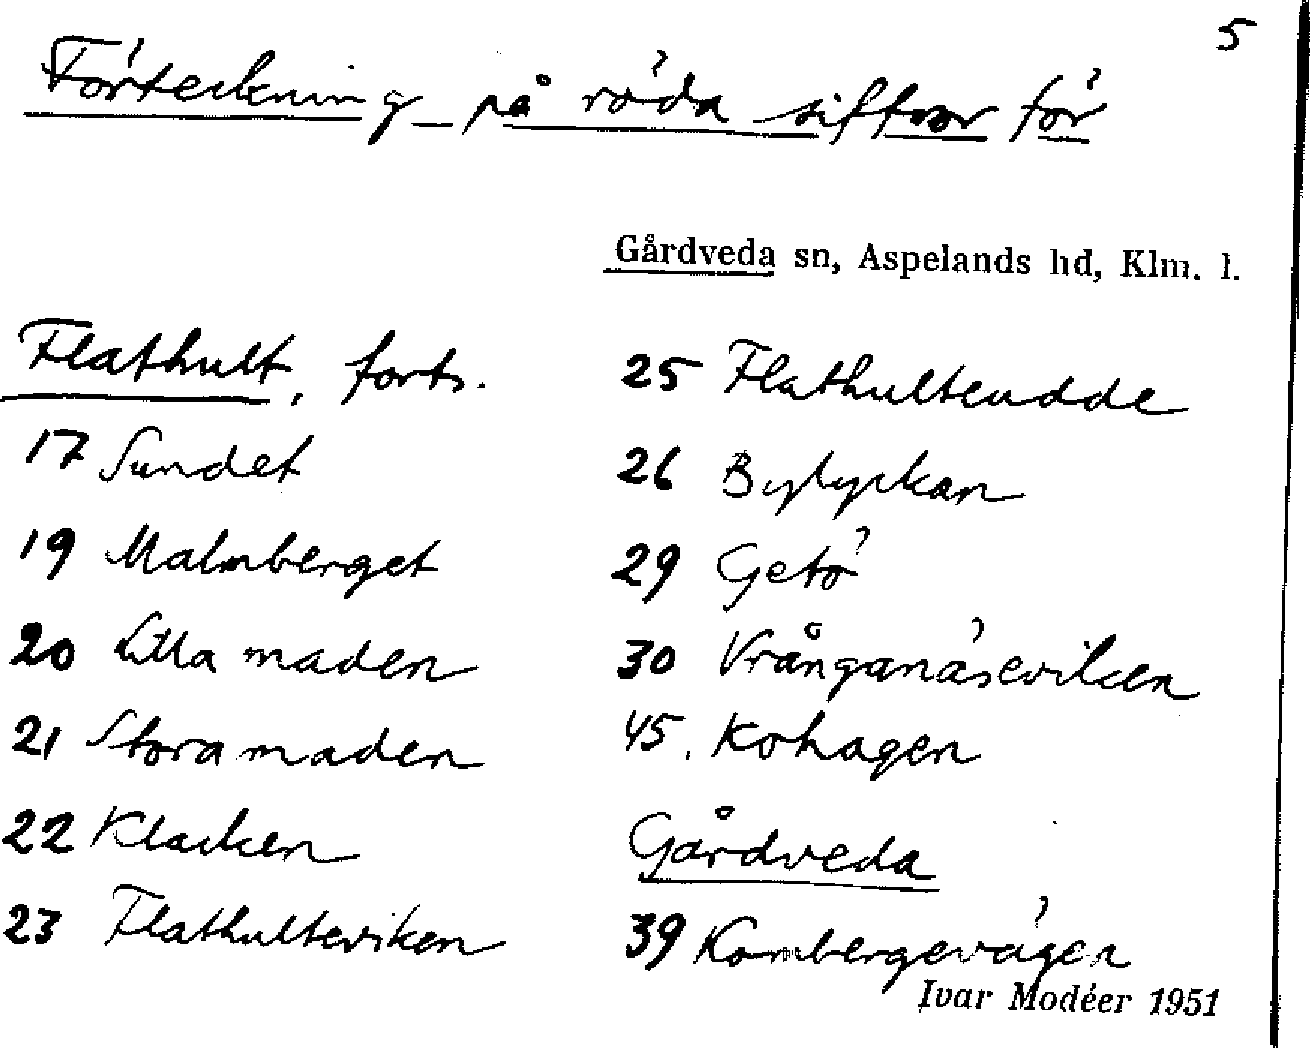 5
Förteckning på röda siffror för
Gårdveda sn, Aspelands hd, Klm. l.
Flathult, forts.
17 Sundet
19 Malmberget
20 Lilla maden
21 Stora maden
22 Klacken
23 Flathulteviken
25 Flathulteudde
26 Bylyckan
29 Getö
30 Vrånganäseviken
45. Kohagen
Gårdveda
39 Kombergevägen
Ivar Modéer 1951